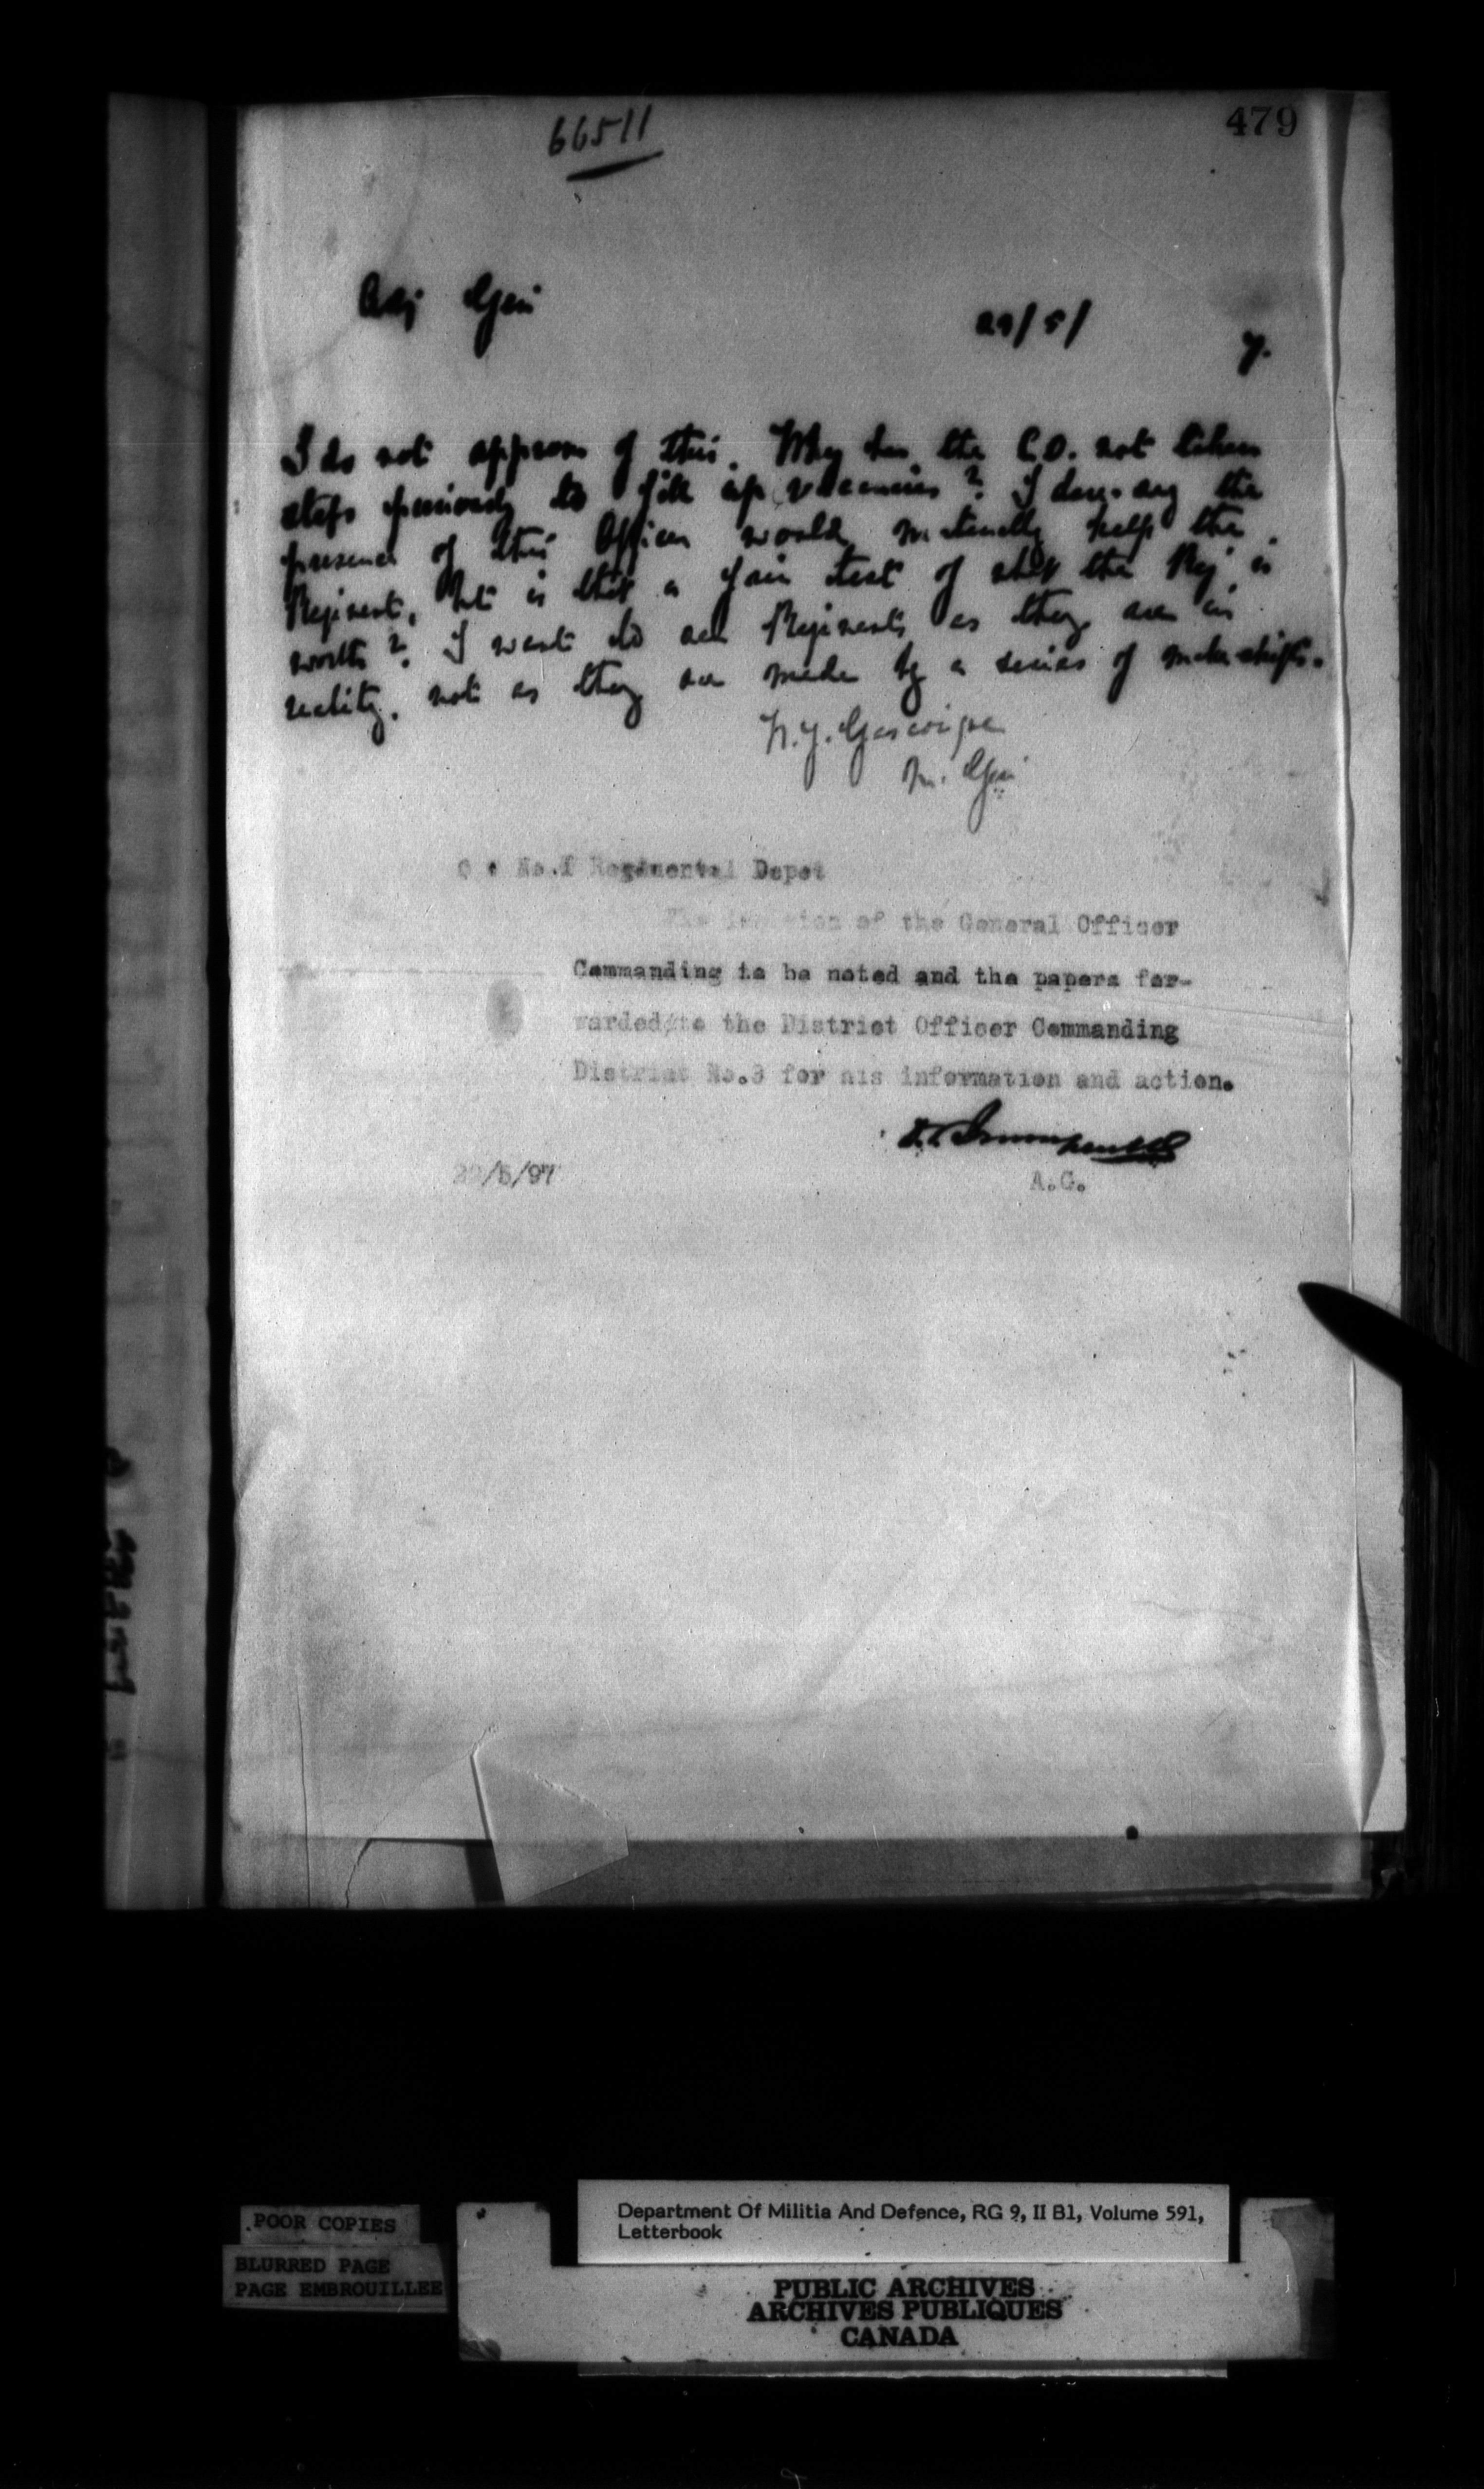 479
66511
Adj Gen
29/5/
7.
I do not approve of this. Why has the C.O. not taken
steps previously to fill up vacancies? I dare say the
presence of this Officer would materially help the
Regiment, but is that a fair test of what the Reg is
worth? I want to see Regiments as they are in
reality, not as they are made by a series of make-shifts.
W. J. Gascoigne
M. Gen
No.1 Regimental Depot
The of the General Officer
Commanding to be noted and the papers for-
warded to the District Officer Commanding
District No.3 for his information and action.
A.G.
/5/97
POOR COPIES
BLURRED PAGE
PAGE EMBROUILLEE
Department Of Militia And Defence, RG 9, II B1, Volume 591,
Letterbook
PUBLIC ARCHIVES
ARCHIVES PUBLIQUES
CANADA